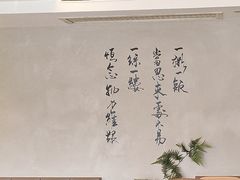 一粥一飯
當思來處不易
一絲一縷
恒念物力維艱